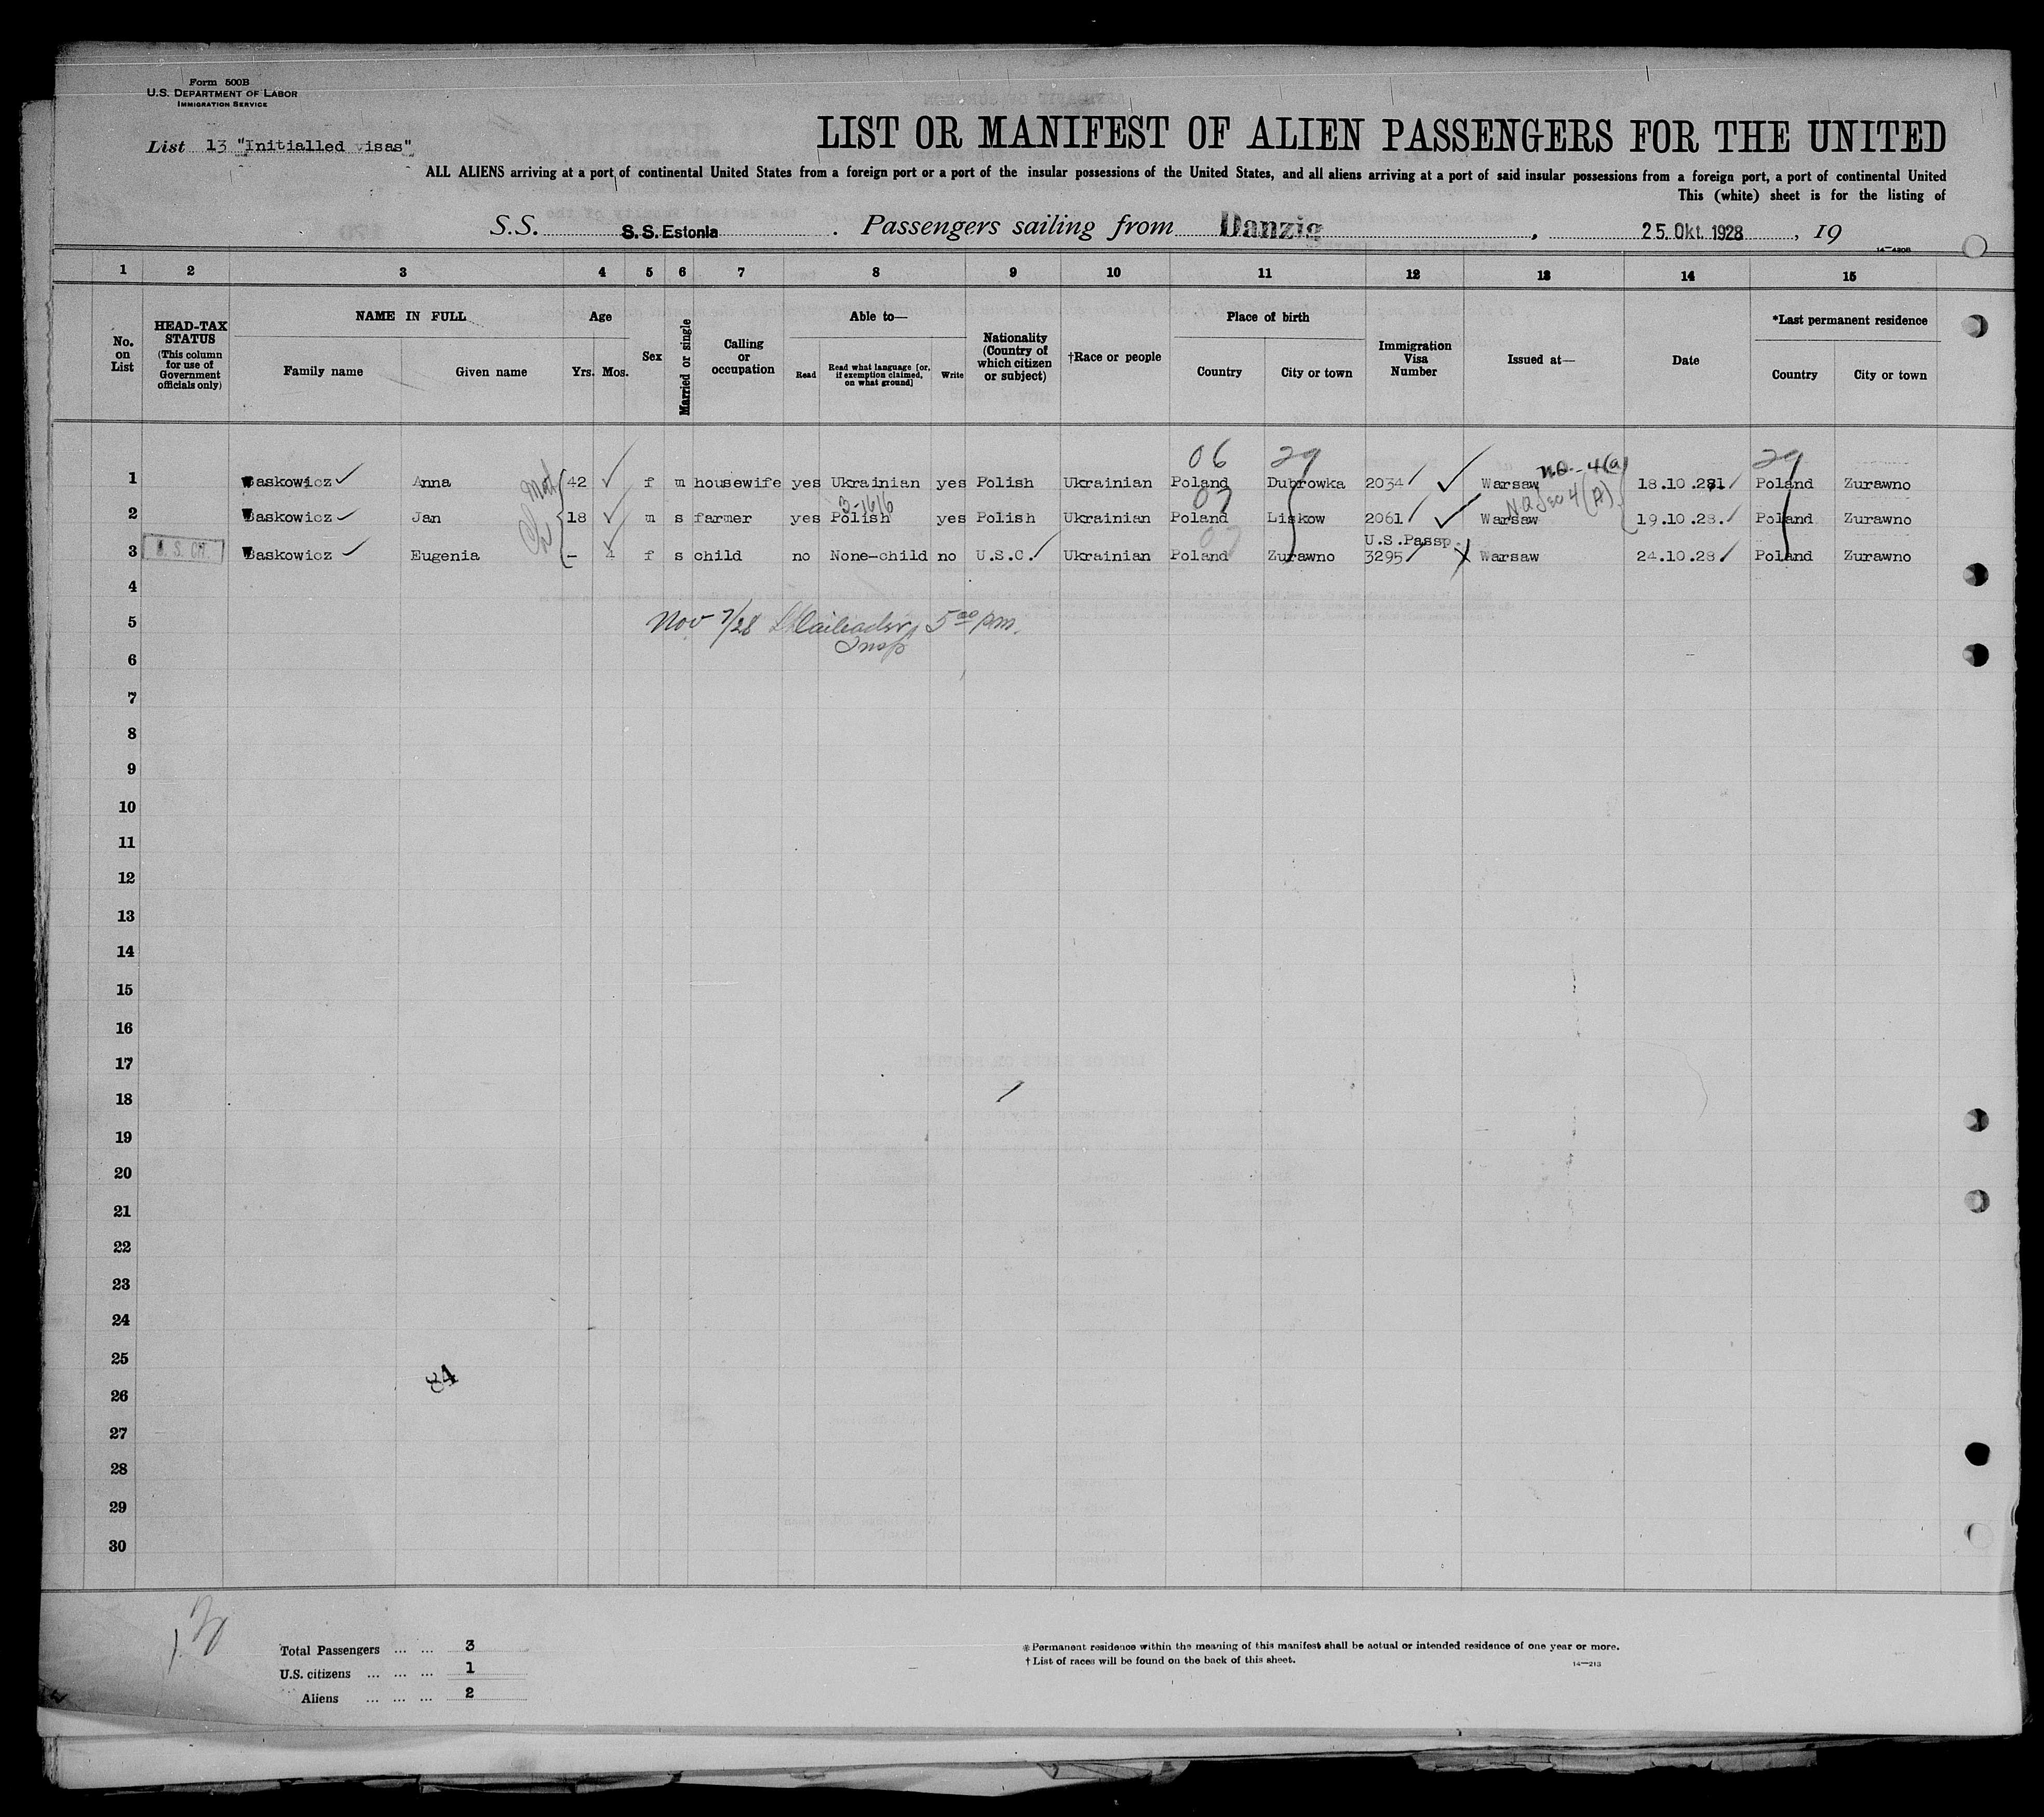 Form 500B
U.S. DEPARTMENT OF LABOR
IMMIGRATION SERVICE
List 13 "Initialled visas"
LIST OR MANIFEST OF ALIEN PASSENGERS FOR THE UNITED
ALL ALIENS arriving at a port of continental United States from a foreign port or a port of the insular possessions of the United States, and all aliens arriving at a port of said insular possessions from a foreign port, a port of continental United
This (white) sheet is for the listing of
S.S. S.S. Estonia . Passengers sailing from Danzig , 25. Okt. 1928 , 19
14—4208
1 2 3 4 5 6 7 8 9 10 11 12 13 14 15
No. on List
HEAD-TAX STATUS (This column for use of Government officials only)
NAME IN FULL
Family name Given name
Age
Yrs. Mos.
Sex
Married or single
Calling or occupation
Able to—
Read Read what language [or, if exemption claimed, on what ground] Write
Nationality (Country of which citizen or subject)
†Race or people
Place of birth
Country City or town
Immigration Visa Number
Issued at—
Date
*Last permanent residence
Country City or town
06 29 29
1 Waskowicz Anna 42 f m housewife yes Ukrainian yes Polish Ukrainian Poland Dubrowka 2034 Warsaw 18.10.28 Poland Zurawno
3-1616 07 N.Q. Sec 4(A)
2 Waskowicz Jan 18 m s farmer yes Polish yes Polish Ukrainian Poland Liskow 2061 Warsaw 19.10.28. Poland Zurawno
U.S.Passp.
3 U. S. CIT. Waskowicz Eugenia – 4 f s child no None-child no U.S.C. Ukrainian Poland Zurawno 3295 Warsaw 24.10.28 Poland Zurawno
4
5 Nov 7/28 5 00 pm.
Insp
6
7
8
9
10
11
12
13
14
15
16
17
18
19
20
21
22
23
24
25
84
26
27
28
29
30
Total Passengers ... ... 3
U.S. citizens ... ... ... 1
Aliens ... ... ... 2
* Permanent residence within the meaning of this manifest shall be actual or intended residence of one year or more.
† List of races will be found on the back of this sheet.
14—213